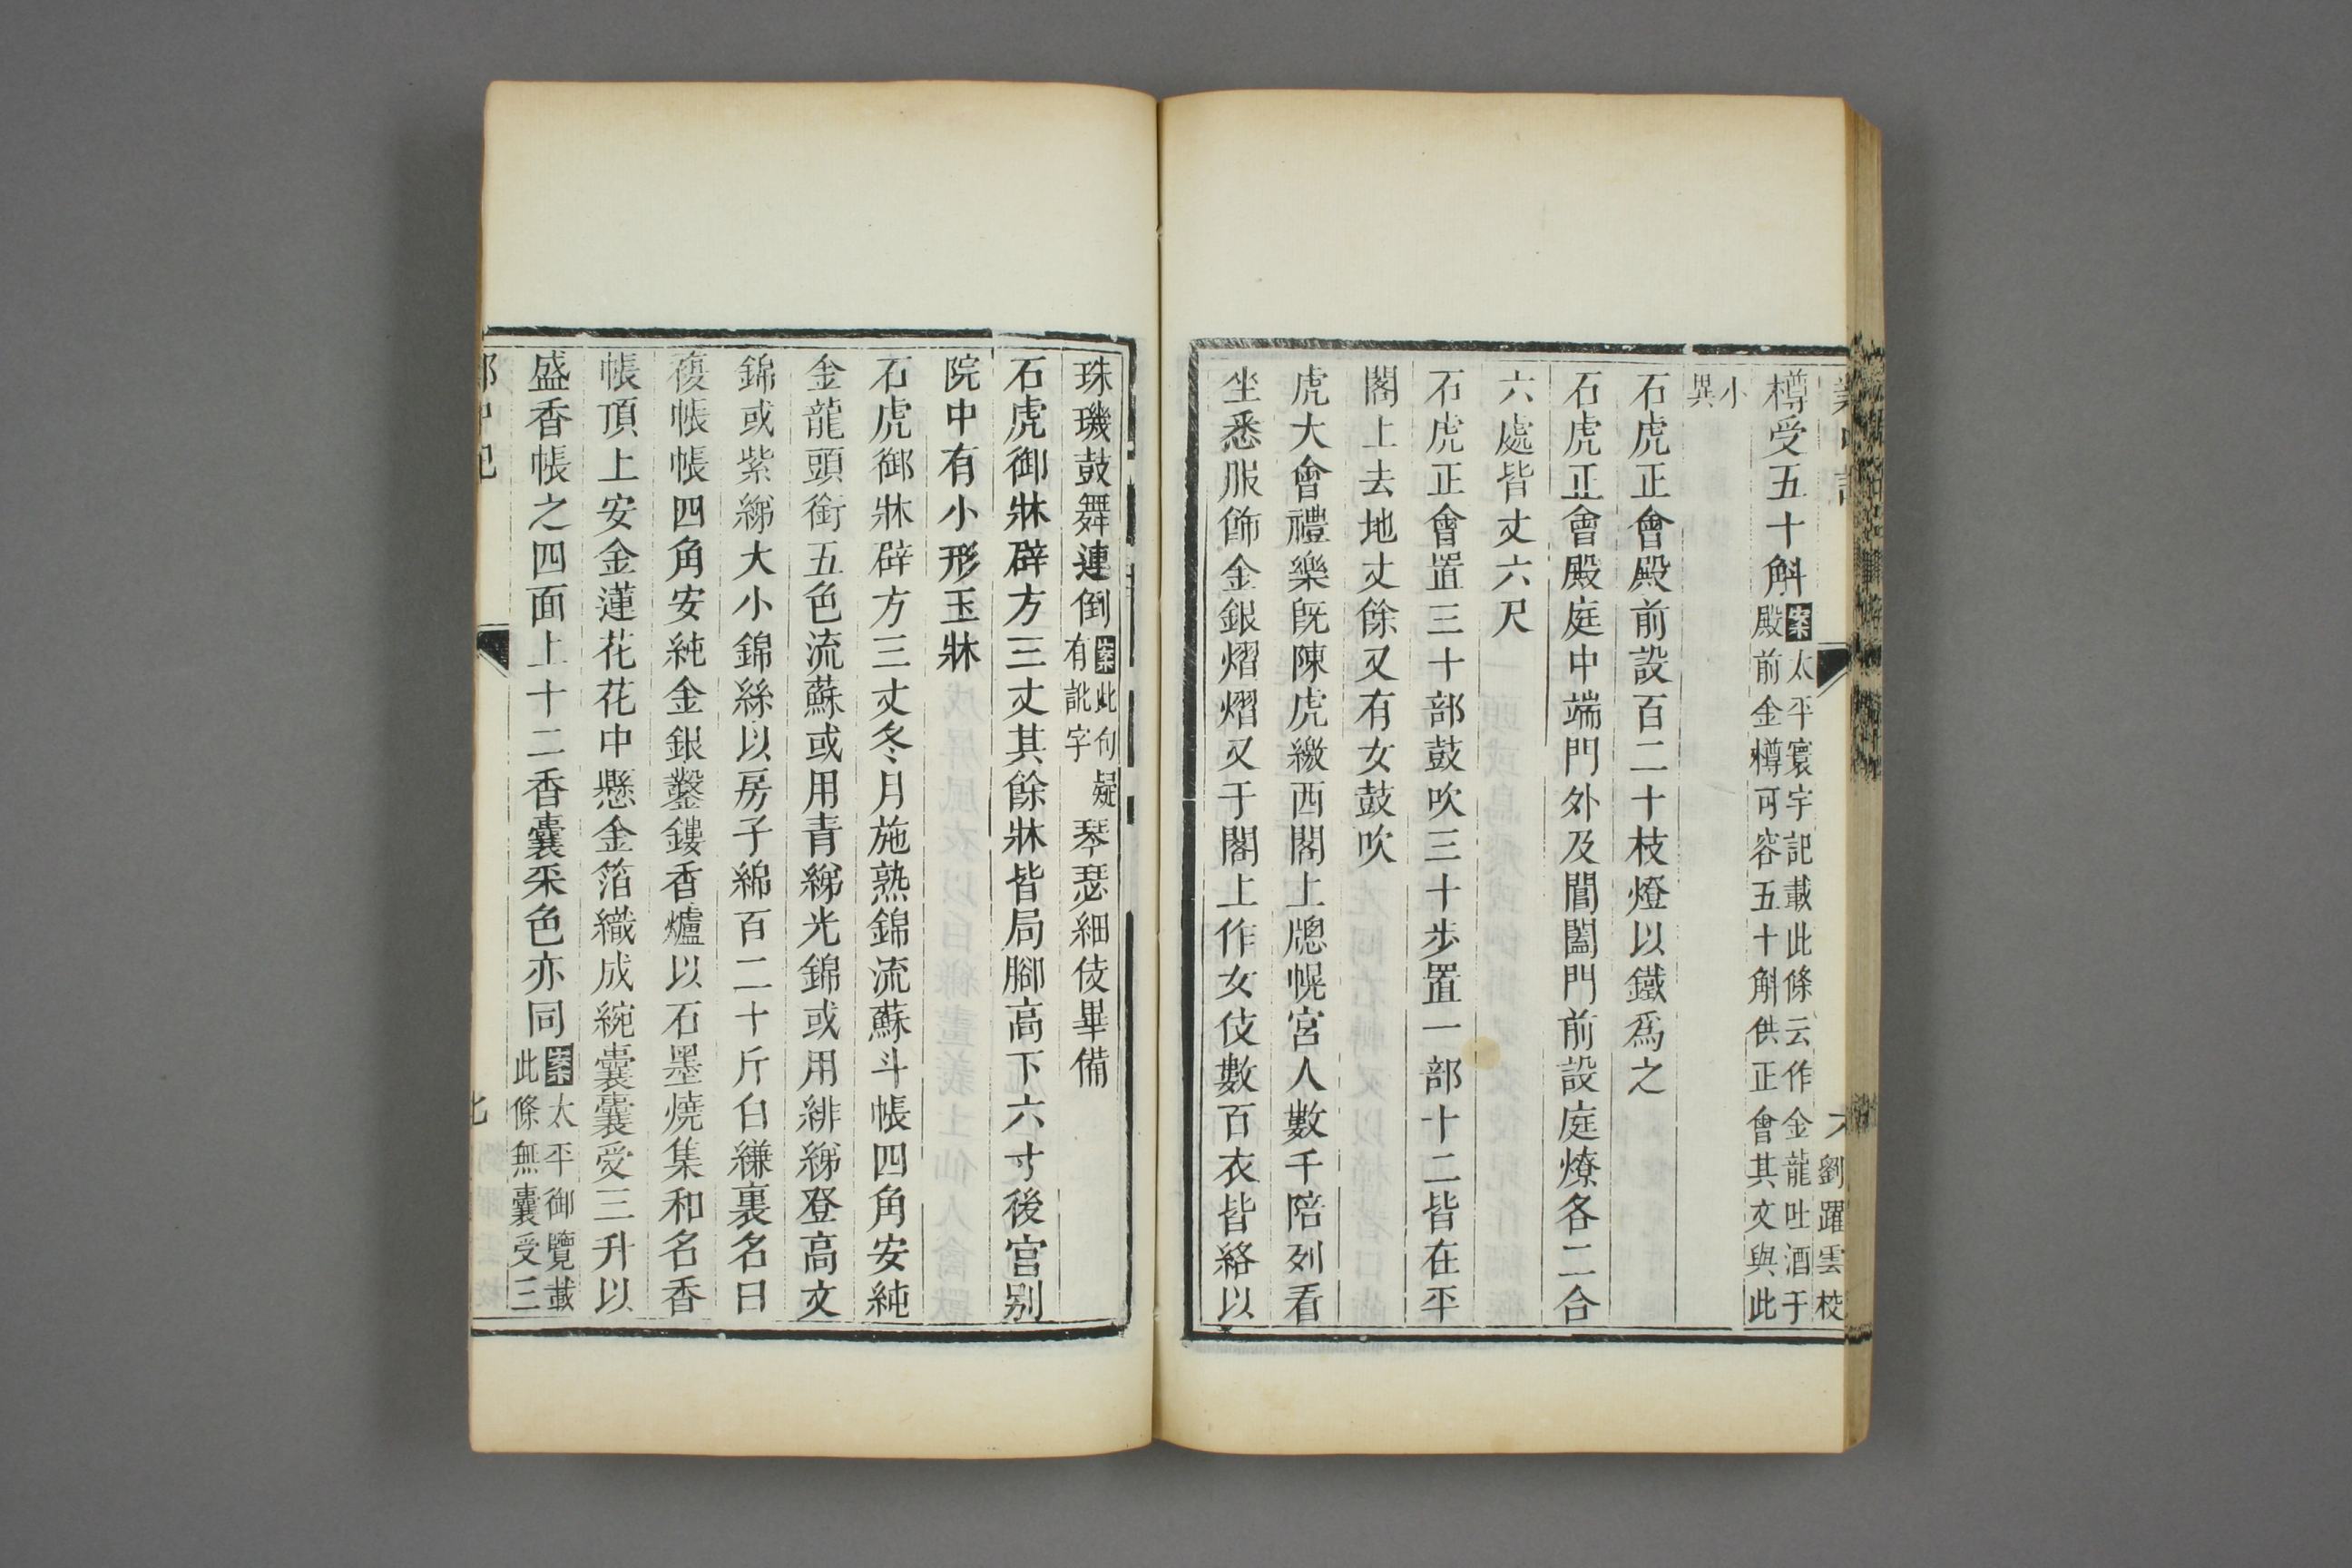 劉躍雲校
樽受五十斛案太平寰宇記載此條云作金龍吐酒于殿前金樽可容五十斛供正會其文與此
小異
石虎正會殿前設百二十枝燈以鐵爲之
石虎正會殿庭中端門外及閶闔門前設庭燎各二合
六處皆丈六尺
石虎正會置三十部鼓吹三十步置一部十二皆在平
閣上去地丈餘又有女鼓吹
虎大會禮樂旣陳虎繳西閣上牕幌宮人數千陪列看
坐悉服飾金銀熠熠又于閣上作女伎數百衣皆絡以
珠璣鼓舞連倒案此句疑有訛字琴瑟細伎畢備
石虎御牀辟方三丈其餘牀皆局腳高下六寸後宮别
院中有小形玉牀
石虎御牀辟方三丈冬月施熟錦流蘇斗帳四角安純
金龍頭銜五色流蘇或用青綈光錦或用緋綈登高文
錦或紫綈大小錦絲以房子綿百二十斤白縑裏名曰
複帳帳四角安純金銀鑿鏤香爐以石墨燒集和名香
帳頂上安金蓮花花中懸金箔織成綩囊囊受三升以
盛香帳之四面上十二香囊采色亦同案太平御覽載此條無囊受三